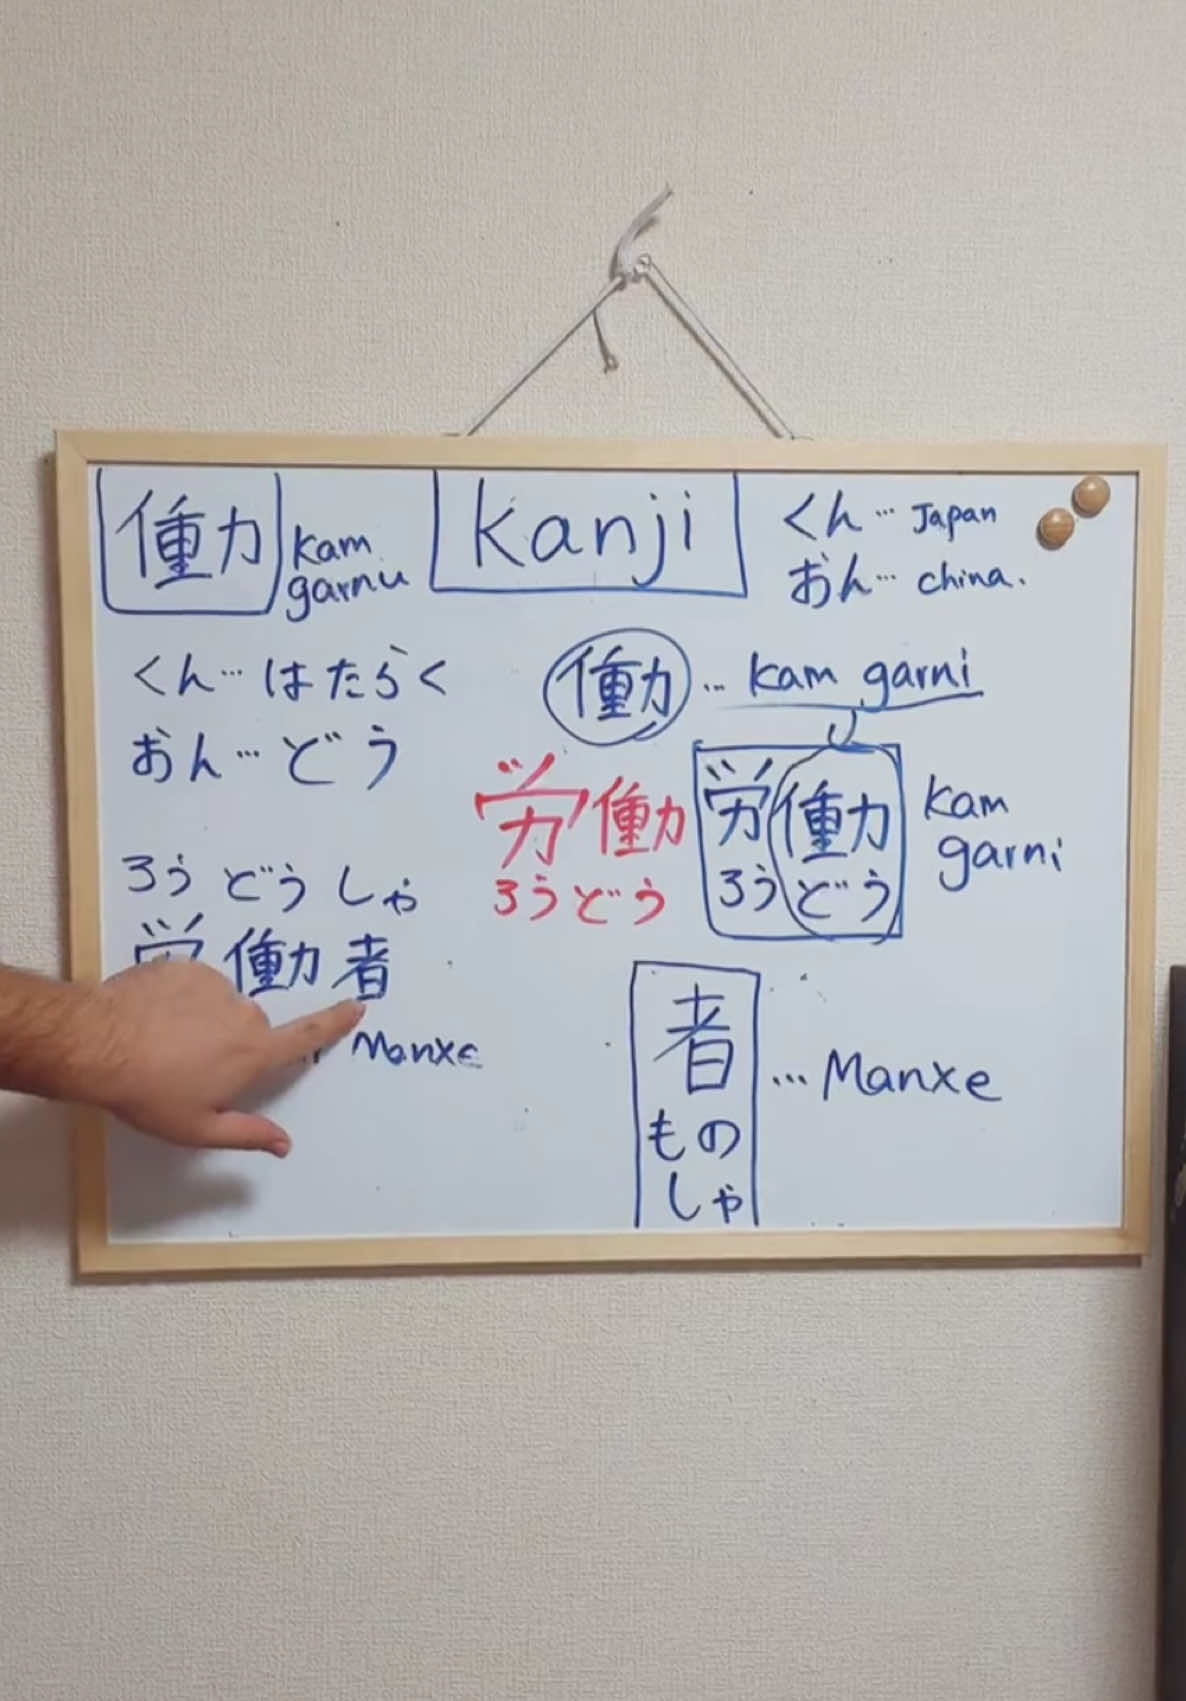 働 kam garnu
Kanji
くん… Japan
おん… china.
くん… はたらく
おん… どう
働 … kam garni
労働
ろうどう
労働 kam garni
ろうどう
ろうどうしゃ
労働者
Manxe
者 … Manxe
もの
しゃ